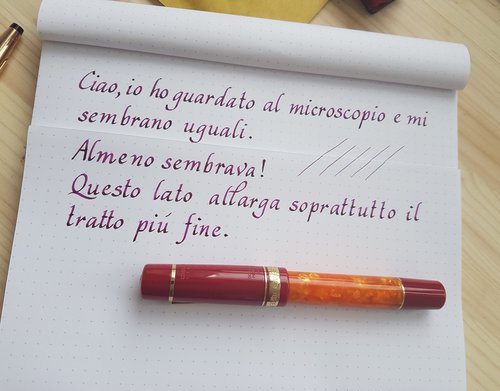 Ciao, io ho guardato al microscopio e mi
sembrano uguali.
Almeno sembrava!
Questo lato allarga soprattutto il
tratto piú fine.